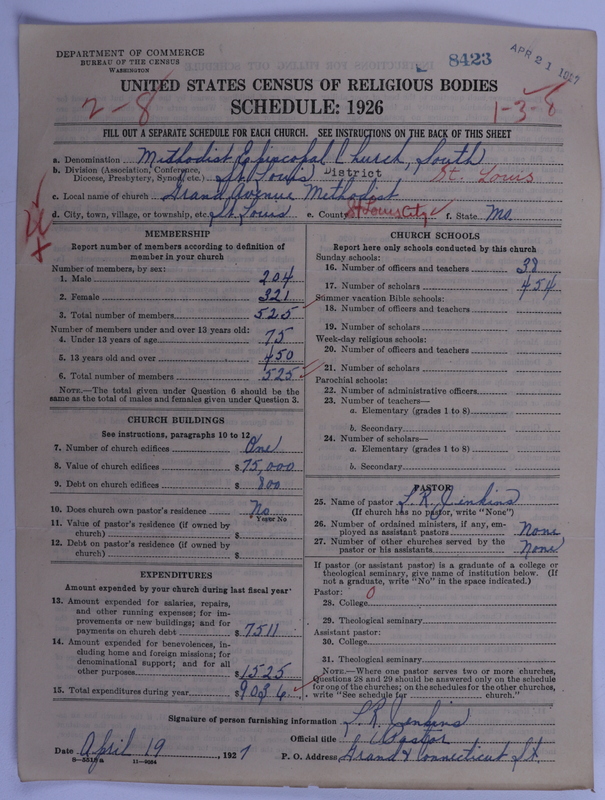 DEPARTMENT OF COMMERCE
BUREAU OF THE CENSUS
WASHINGTON
8423
APR 21 1927
UNITED STATES CENSUS OF RELIGIOUS BODIES
2-8
SCHEDULE: 1926
1-3-8
FILL OUT A SEPARATE SCHEDULE FOR EACH CHURCH. SEE INSTRUCTIONS ON THE BACK OF THIS SHEET
a. Denomination Methodist Episcopal Church, South
b. Division (Association, Conference, Diocese, Presbytery, Synod, etc.) St. Louis District St. Louis
c. Local name of church Grand Avenue Methodist
d. City, town, village, or township, etc. St. Louis e. County St Louis City f. State Mo.
MEMBERSHIP
Report number of members according to definition of
member in your church
Number of members, by sex:
1. Male 204
2. Female 321
3. Total number of members 525
Number of members under and over 13 years old:
4. Under 13 years of age 75
5. 13 years old and over 450
6. Total number of members 525
NOTE.—The total given under Question 6 should be the
same as the total of males and females given under Question 3.
CHURCH BUILDINGS
See instructions, paragraphs 10 to 12
7. Number of church edifices One
8. Value of church edifices $75,000
9. Debt on church edifices $ 800
10. Does church own pastor's residence No
Yes or No
11. Value of pastor's residence (if owned by
church) $
12. Debt on pastor's residence (if owned by
church) $
EXPENDITURES
Amount expended by your church during last fiscal year
13. Amount expended for salaries, repairs,
and other running expenses; for im-
provements or new buildings; and for
payments on church debt $ 7511
14. Amount expended for benevolences, in-
cluding home and foreign missions; for
denominational support; and for all
other purposes $1525
15. Total expenditures during year $9036
CHURCH SCHOOLS
Report here only schools conducted by this church
Sunday schools:
16. Number of officers and teachers 38
17. Number of scholars 454
Summer vacation Bible schools:
18. Number of officers and teachers
19. Number of scholars
Week-day religious schools:
20. Number of officers and teachers
21. Number of scholars
Parochial schools:
22. Number of administrative officers
23. Number of teachers—
a. Elementary (grades 1 to 8)
b. Secondary
24. Number of scholars—
a. Elementary (grades 1 to 8)
b. Secondary
PASTOR
25. Name of pastor L. R. Jenkins
(If church has no pastor, write "None")
26. Number of ordained ministers, if any, em-
ployed as assistant pastors None
27. Number of other churches served by the
pastor or his assistants None
If pastor (or assistant pastor) is a graduate of a college or
theological seminary, give name of institution below. (If
not a graduate, write "No" in the space indicated.)
Pastor: 0
28. College
29. Theological seminary
Assistant pastor:
30. College
31. Theological seminary
NOTE.—Where one pastor serves two or more churches,
Questions 28 and 29 should be answered only on the schedule
for one of the churches; on the schedules for the other churches,
write "See schedule for church."
Signature of person furnishing information L. R. Jenkins
Official title Pastor
Date April 19, 1927 P. O. Address Grand & Connecticut St.
8-5518a 11-9024